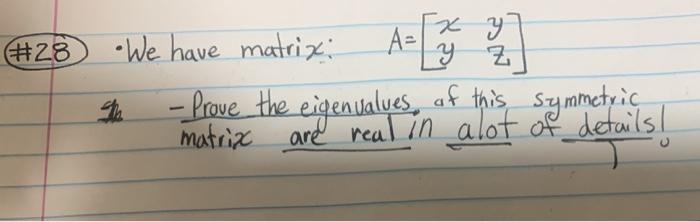 #28 • We have matrix: A = [x y
y z]
- Prove the eigenvalues of this symmetric
matrix are real in alot of details!